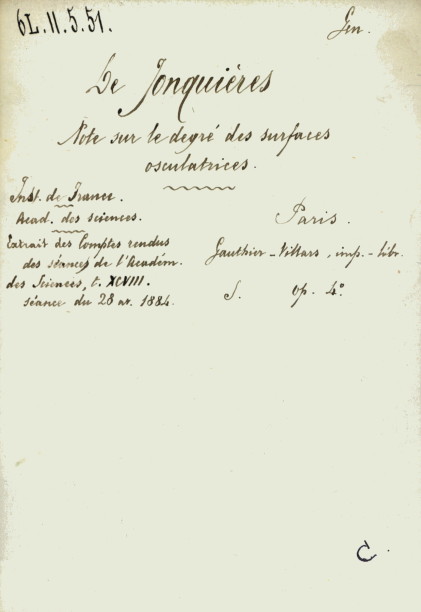 6L.11.5.51.
Gen.
De Jonquiéres
Note sur le degré des surfaces
osculatrices.
Inst. de France.
Acad. des sciences.
Paris.
Extrait des Comptes rendus
des séances de l'Académ.
des Sciences, t. XCVIII.
séance du 28 av. 1884.
Gauthier-Villars, imp.-libr.
S. op. 4°.
C